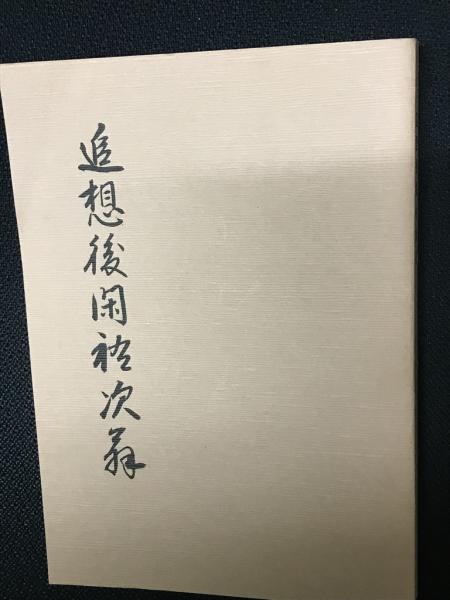 追想後閑祐次翁